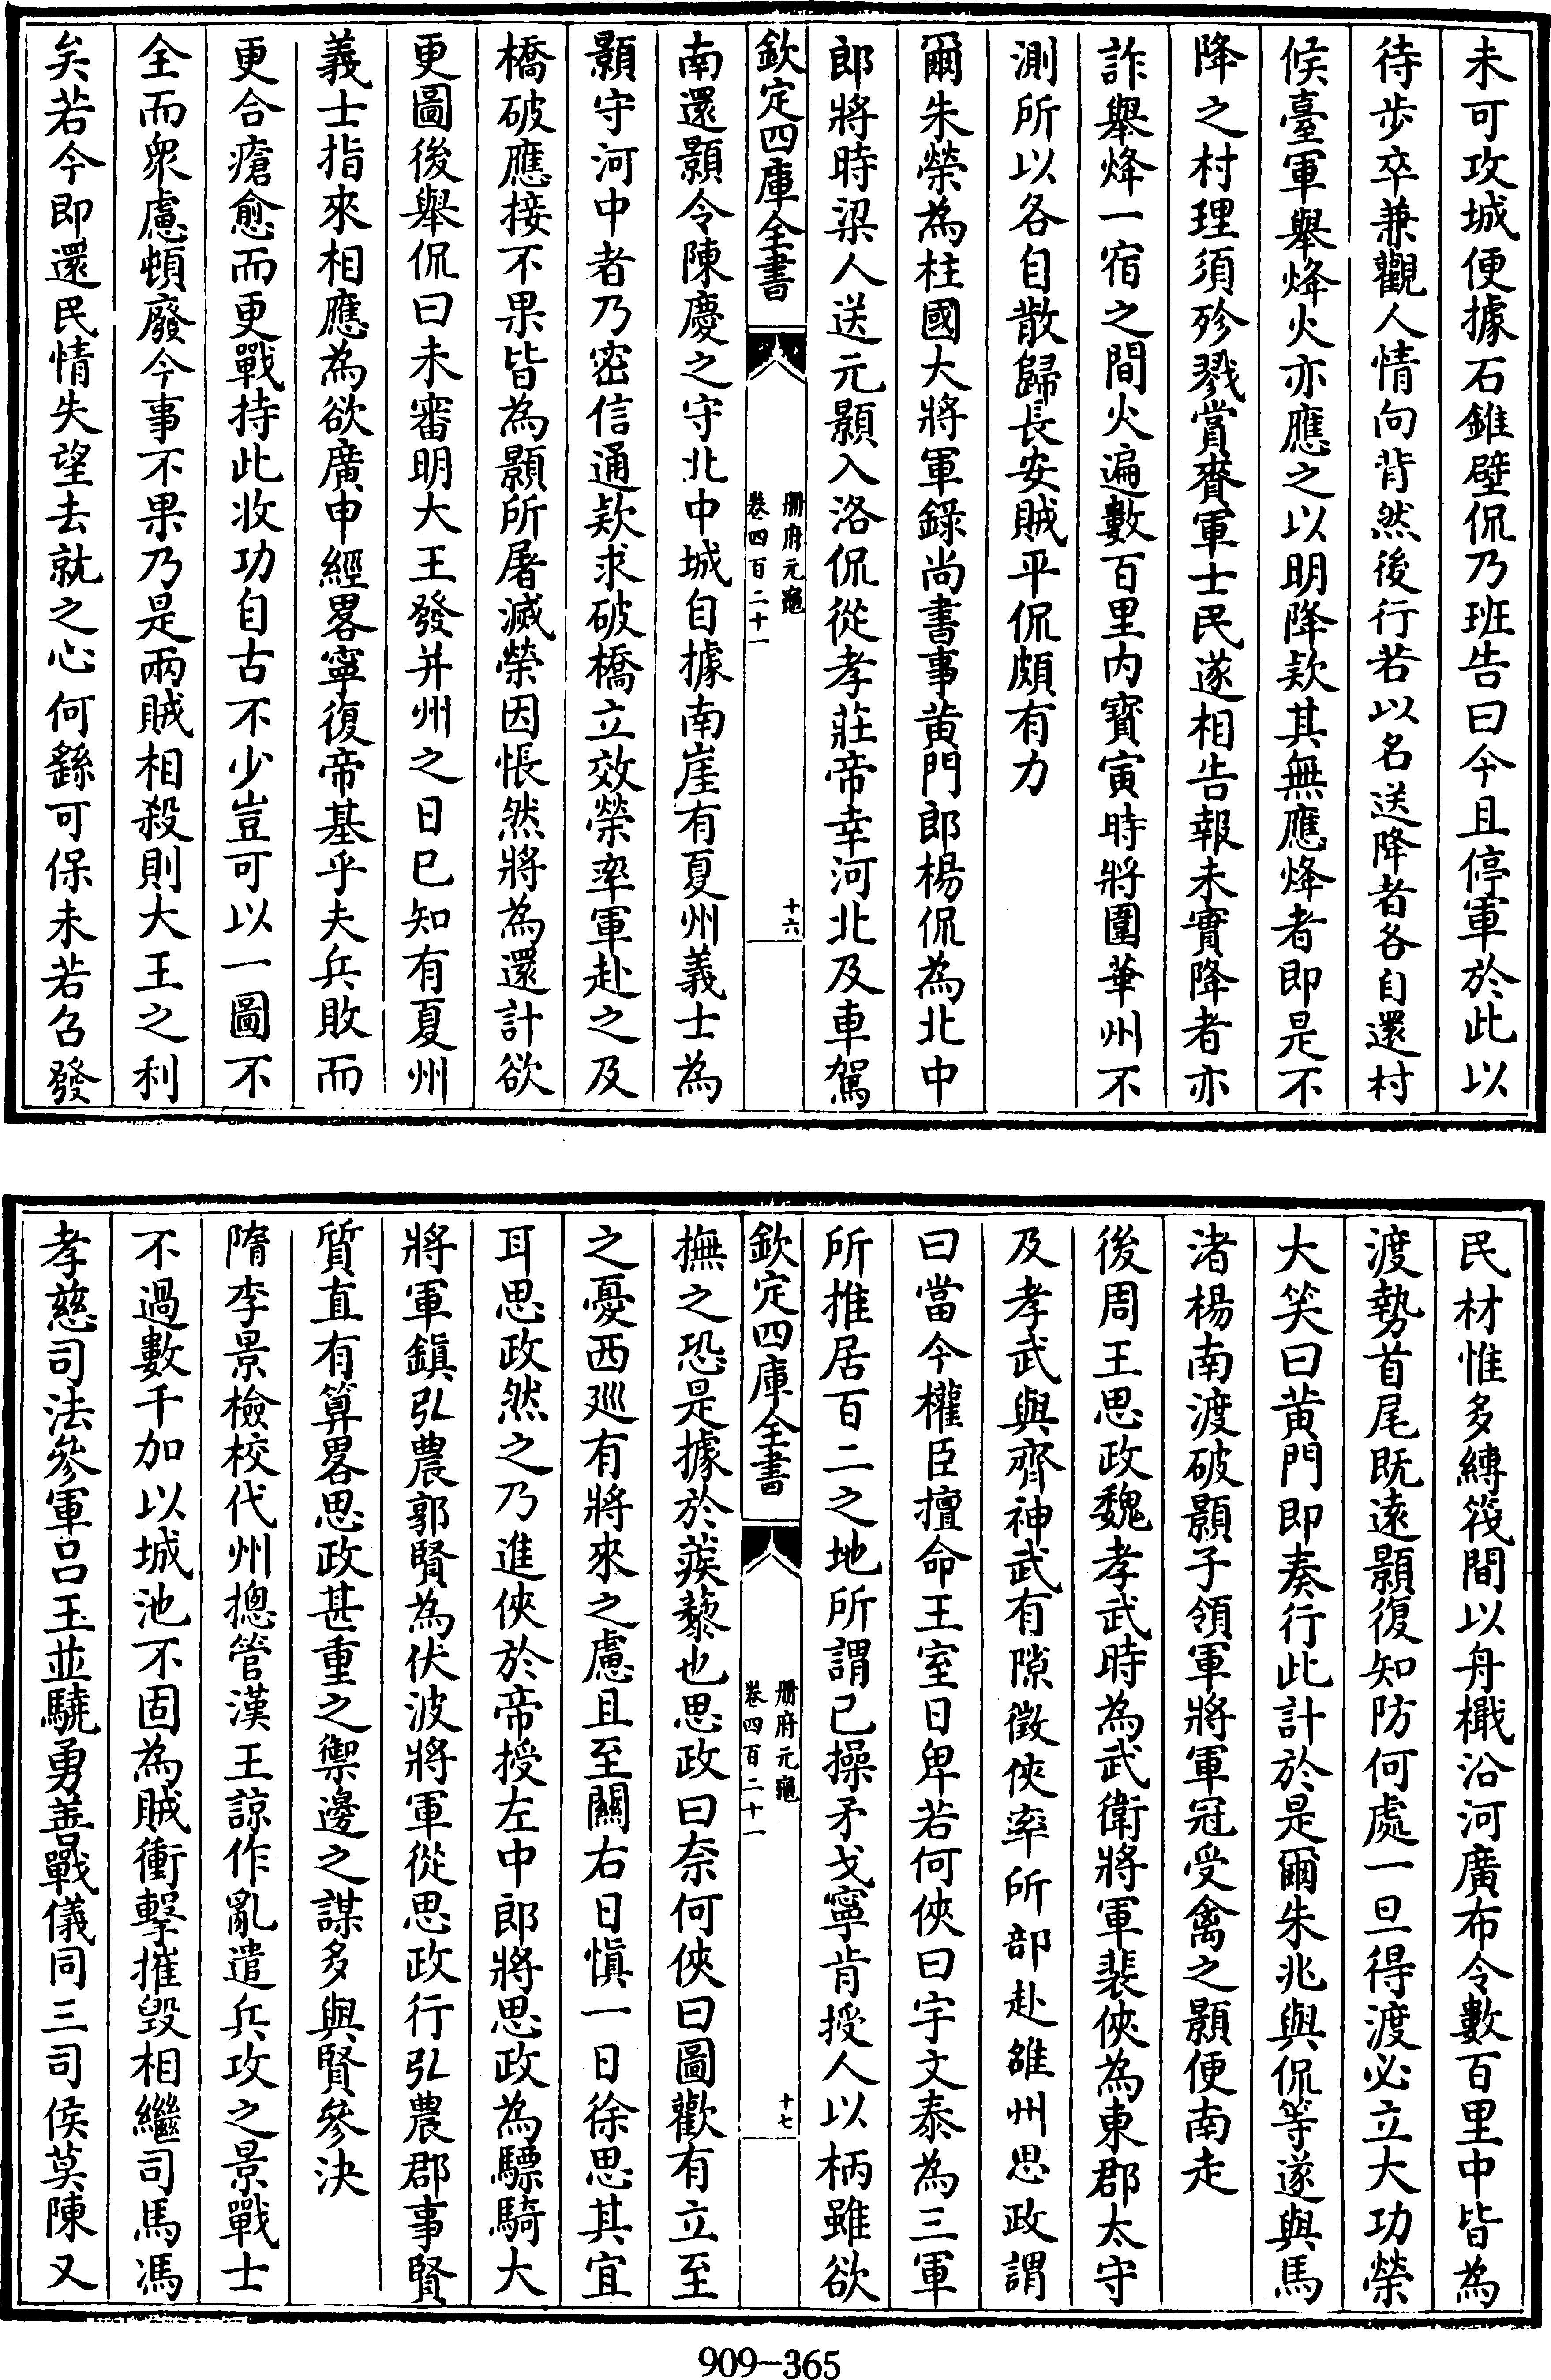 未可攻城便據石錐壁侃乃班告曰今且停軍於此以
待步卒兼觀人情向背然後行若以名送降者各自還村
候臺軍舉烽火亦應之以明降款其無應烽者即是不
降之村理須殄戮賞賚軍士民遂相告報未實降者亦
詐舉烽一宿之間火遍數百里内寳寅時將圍華州不
測所以各自散歸長安賊平侃頗有力
爾朱榮為柱國大將軍錄尚書事黄門郎楊侃為北中
郎將時梁人送元顥入洛侃從孝莊帝幸河北及車駕
欽定四庫全書
册府元龜
卷四百二十一
十六
南還顥令陳慶之守北中城自據南崖有夏州義士為
顥守河中者乃密信通款求破橋立效榮率軍赴之及
橋破應接不果皆為顥所屠滅榮因悵然將為還計欲
更圖後舉侃曰未審明大王發并州之日已知有夏州
義士指來相應為欲廣申經畧寧復帝基乎夫兵敗而
更合瘡愈而更戰持此收功自古不少豈可以一圖不
全而衆慮頓廢今事不果乃是兩賊相殺則大王之利
矣若今即還民情失望去就之心何繇可保未若召發
民材惟多縳筏間以舟檝沿河廣布令數百里中皆為
渡勢首尾既遠顥復知防何處一旦得渡必立大功榮
大笑曰黄門即奏行此計於是爾朱兆與侃等遂與馬
渚楊南渡破顥子領軍將軍冠受禽之顥便南走
後周王思政魏孝武時為武衛將軍裴俠為東郡太守
及孝武與齊神武有隙徵俠率所部赴雒州思政謂
曰當今權臣擅命王室日卑若何俠曰宇文泰為三軍
所推居百二之地所謂已操矛戈寧肯授人以柄雖欲
欽定四庫全書
册府元龜
卷四百二十一
十七
撫之恐是據於蒺藜也思政曰奈何俠曰圖歡有立至
之憂西廵有將來之慮且至關右日慎一日徐思其宜
耳思政然之乃進俠於帝授左中郎將思政為驃騎大
將軍鎮弘農郭賢為伏波將軍從思政行弘農郡事賢
質直有算畧思政甚重之禦邊之謀多與賢參決
隋李景檢校代州摠管漢王諒作亂遣兵攻之景戰士
不過數千加以城池不固為賊衝擊摧毀相繼司馬馮
孝慈司法參軍吕玉並驍勇善戰儀同三司侯莫陳又
909-365